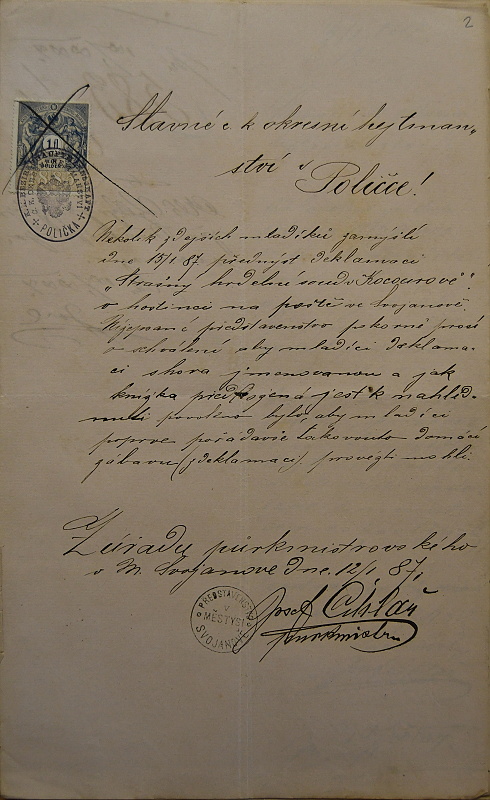 2
Slavné c. k. okresní hejtman„
ství v
Poličce!
Několik zdejších mladíků zamýšlí
dne 15/1 87. přednést deklamaci
„Strašný hrdelní soud v Kocourově"
v hostinci na poště ve Svojanově.
představenstvo pokorně prosí
o schválení aby mladíci deklama-
ci shora jmenovanou a jak
knížka předložená jest k nahléd-
nutí povoleno bylo, aby mladíci
poprve pořádavše takovouto domácí
zábavu (deklamaci) provésti mohli.
Z úřadu purkmistrovského
v M. Svojanově dne 12/1 87,
PŘEDSTAVENSTVO
V
MĚSTYSI
SVOJANOVĚ
Josef
purkmistr
POLIČKA